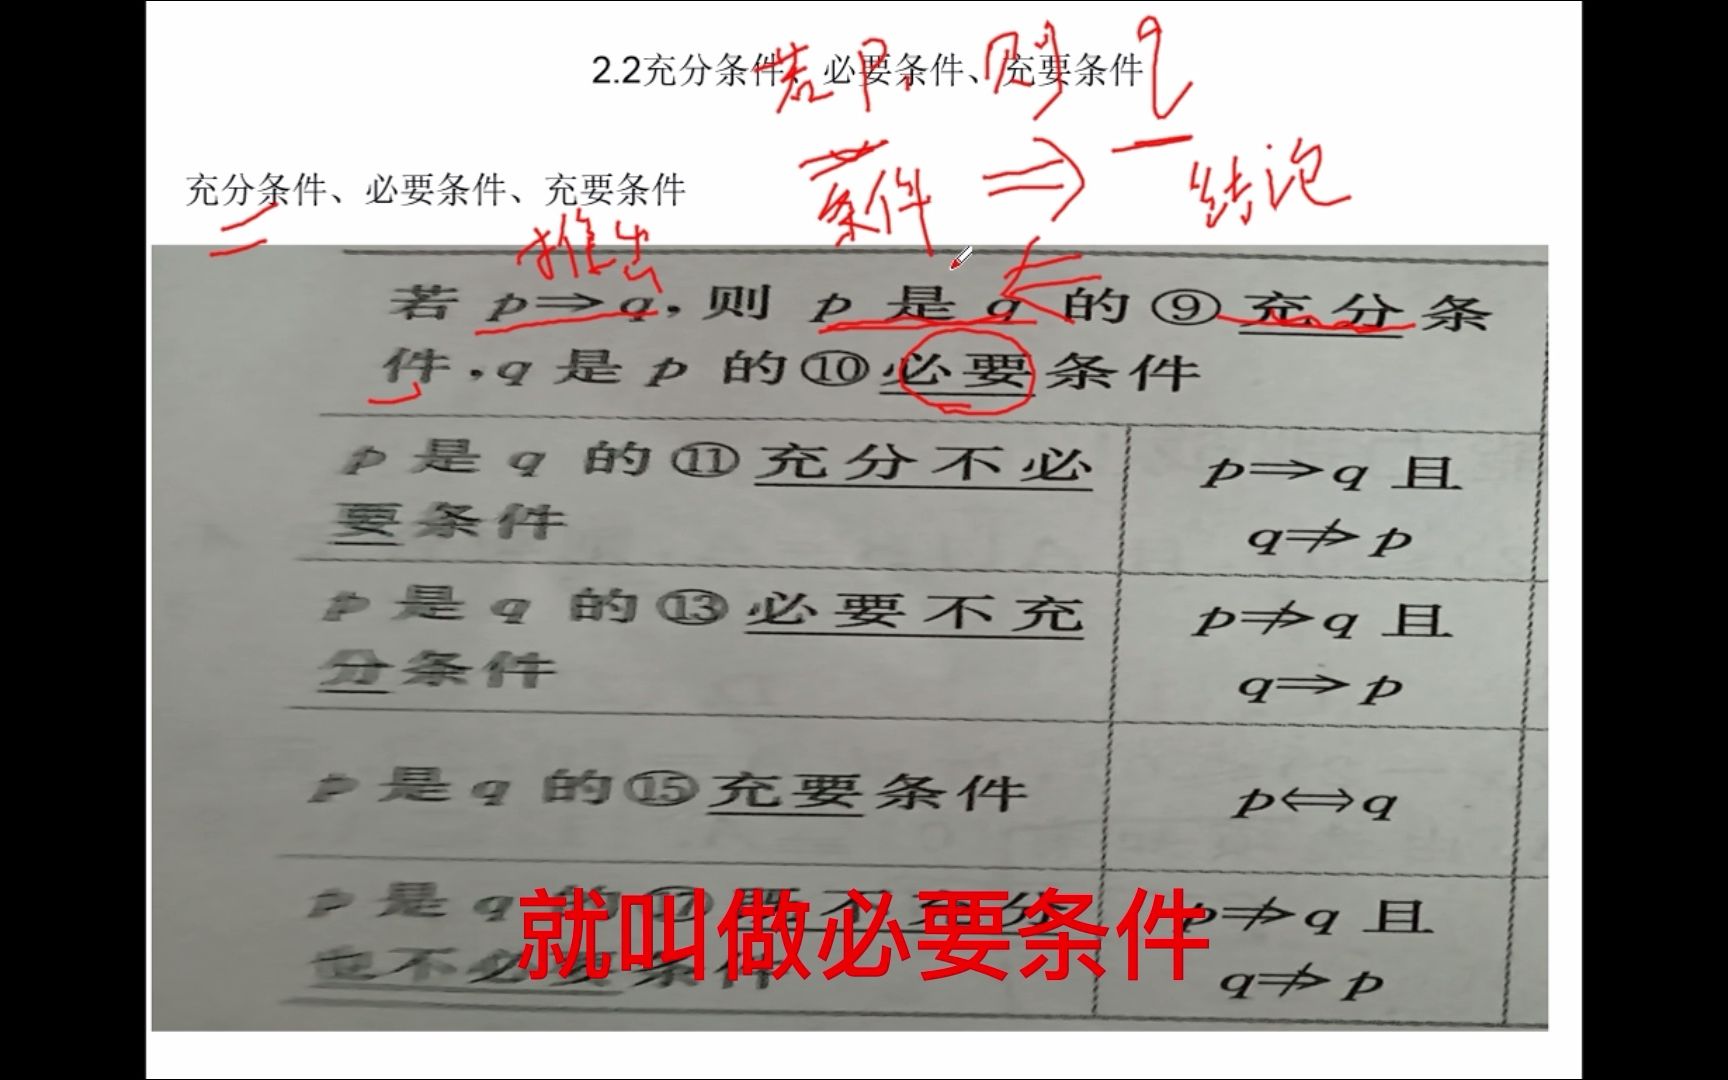 2.2充分条件、必要条件、充要条件
若P,则q
条件⇒结论
充分条件、必要条件、充要条件
推出
若 p⇒q,则 p 是 q 的⑨充分条
件,q 是 p 的⑩必要条件
p 是 q 的⑪充分不必
要条件
p⇒q 且
q⇏p
p 是 q 的⑬必要不充
分条件
p⇏q 且
q⇒p
p 是 q 的⑮充要条件
p⇔q
p 是 q 的⑰既不充分
也不必要条件
p⇏q 且
q⇏p
就叫做必要条件